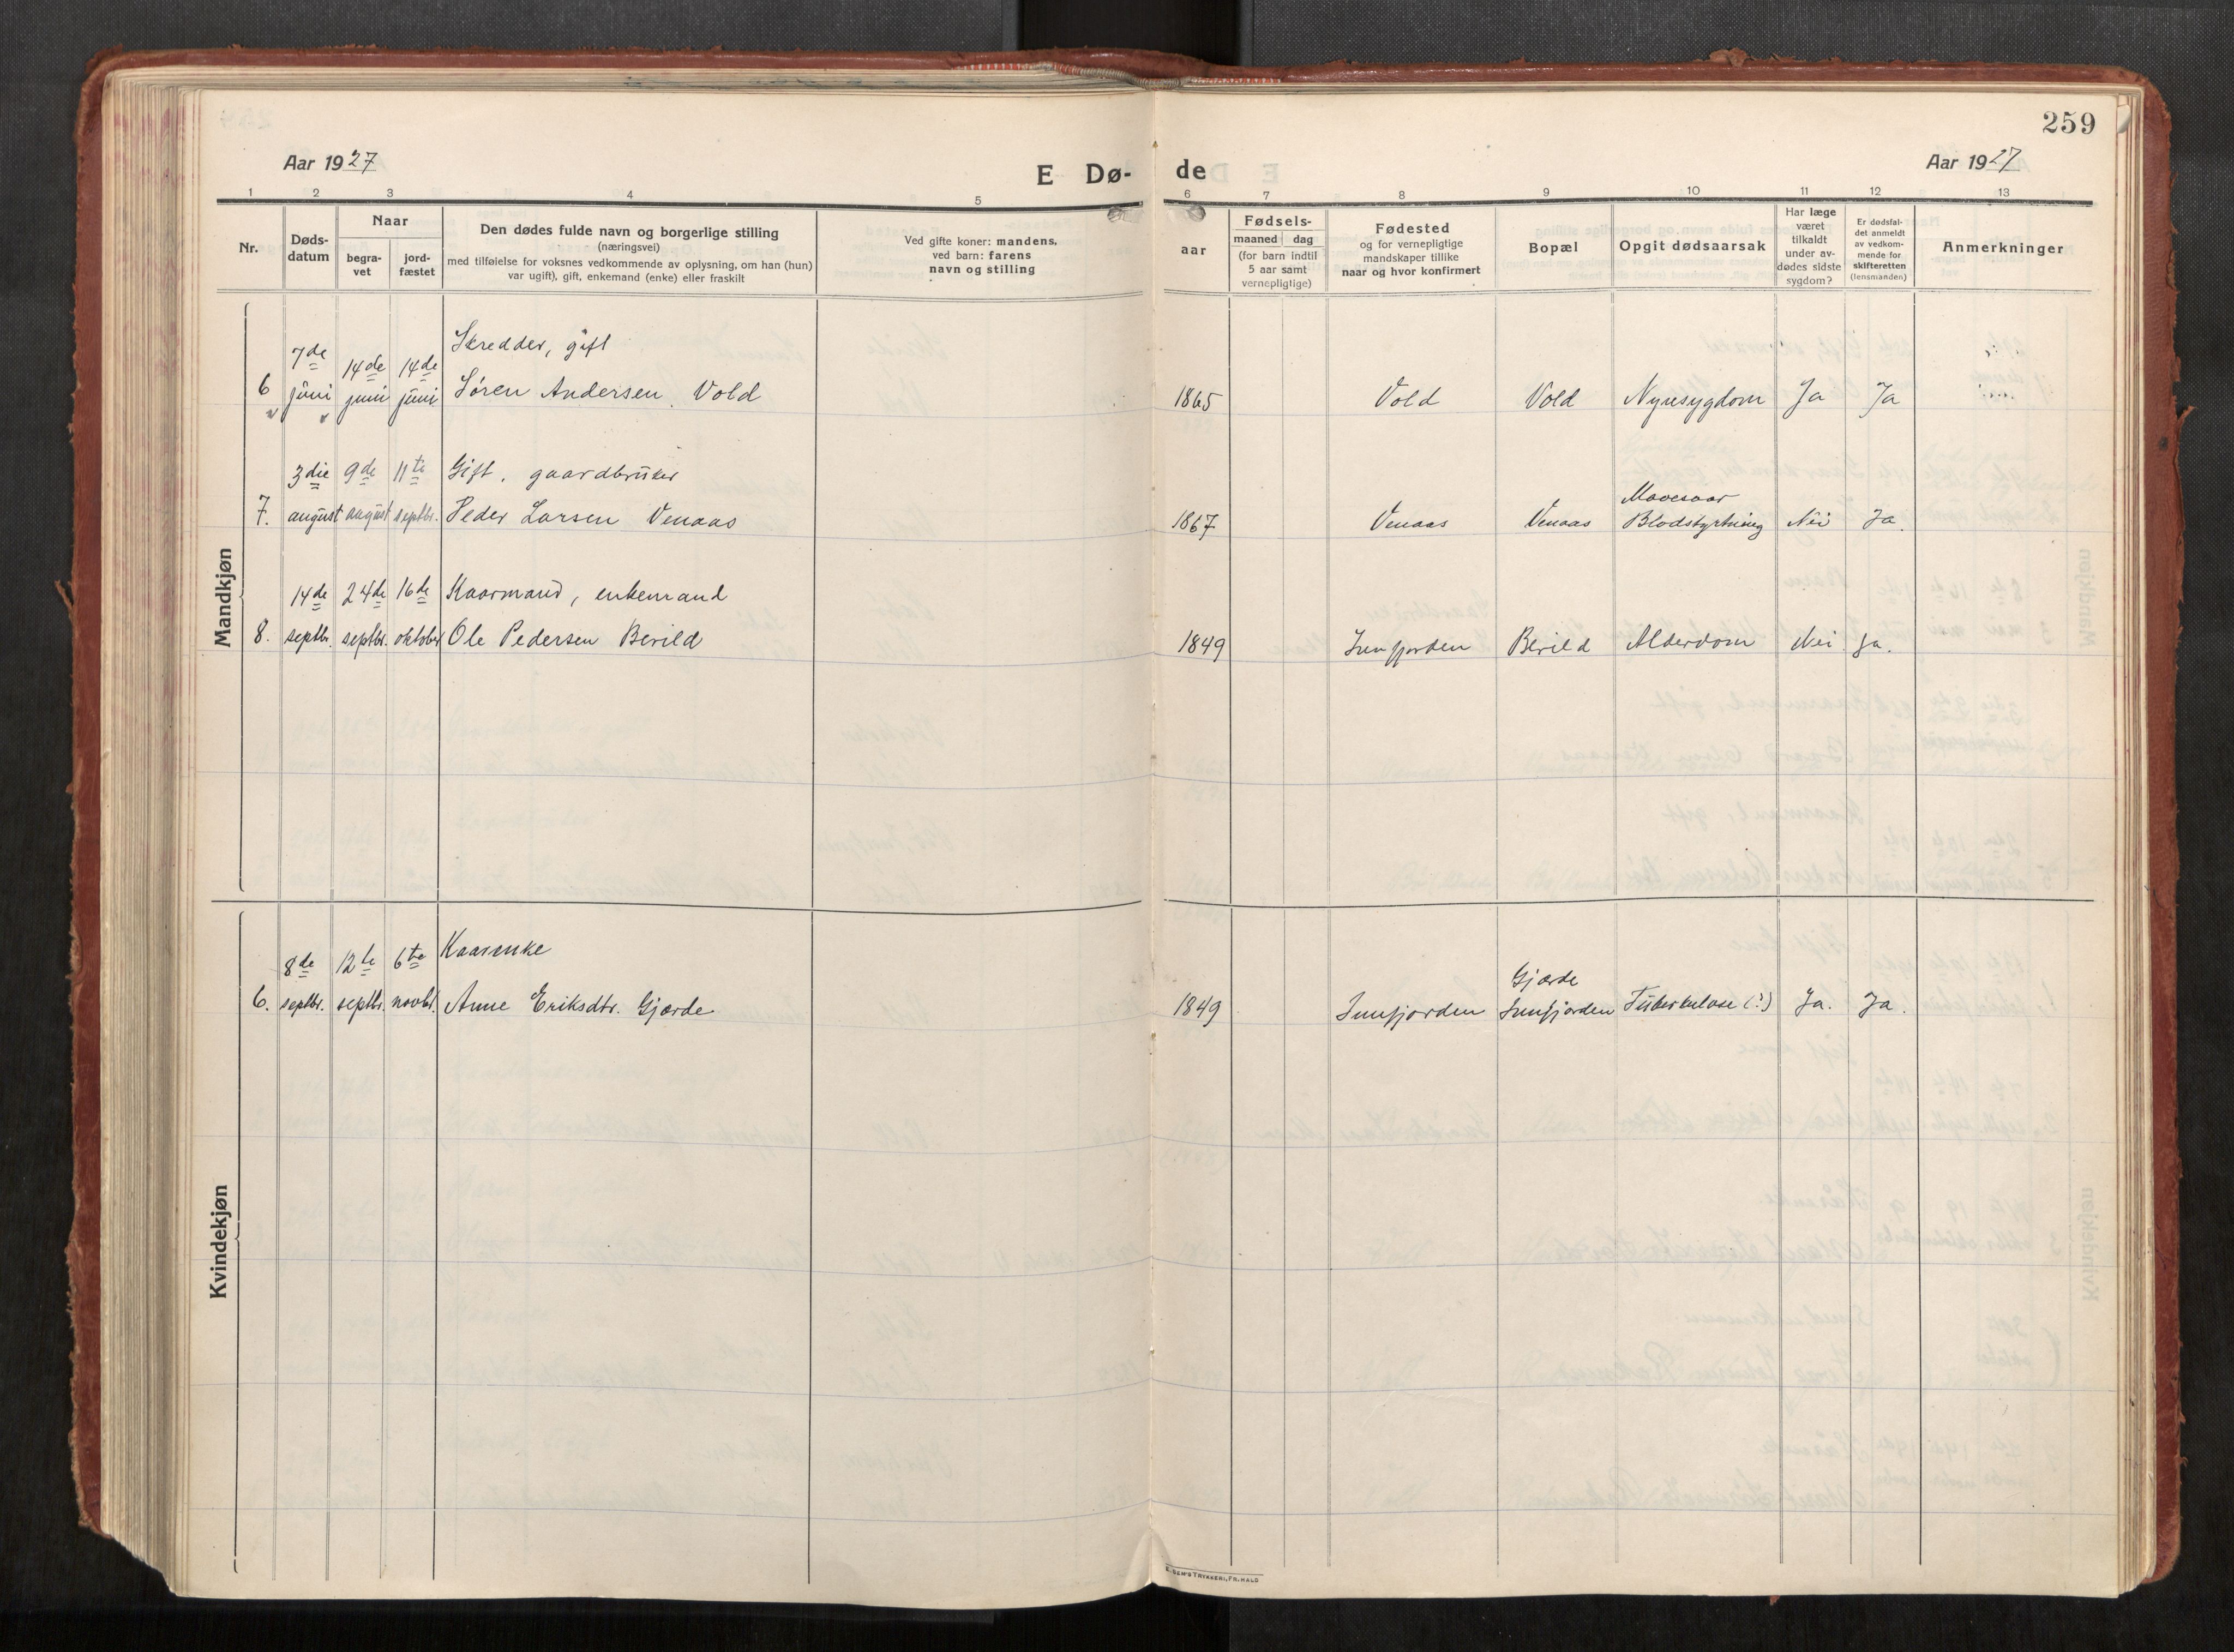 259
Aar 1927
E Dø-
de
Aar 1927
1 2 3 4 5 6 7 8 9 10 11 12 13
Nr.
Døds-
datum
Naar
begra-
vet
jord-
fæstet
Den dødes fulde navn og borgerlige stilling
(næringsvei)
med tilføielse for voksnes vedkommende av oplysning, om han (hun)
var ugift), gift, enkemand (enke) eller fraskilt
Ved gifte koner: mandens,
ved barn: farens
navn og stilling
aar
Fødsels-
maaned dag
(for barn indtil
5 aar samt
vernepligtige)
Fødested
og for vernepligtige
mandskaper tillike
naar og hvor konfirmert
Bopæl
Opgit dødsaarsak
Har læge
været
tilkaldt
under av-
dødes sidste
sygdom?
Er dødsfal-
det anmeldt
av vedkom-
mende for
skifteretten
(lensmanden)
Anmerkninger
Mandkjøn
7de 14de 14de Skredder, gift
6 juni juni juni Søren Andersen Vold 1865 Vold Vold Nyresygdom Ja Ja
3die 9de 11te Gift, gaardbruker Mavesaar
7. august august septbr. Peder Larsen Venaas 1867 Venaas Venaas Blodstyrtning Nei Ja.
14de 24de 16de Kaarmand, enkemand
8. septbr. septbr. oktober Ole Pedersen Berild 1849 Innfjorden Berild Alderdom Nei Ja.
Kvindekjøn
8de 12te 6te Kaarenke Gjærde
6. septbr. septbr. novbr. Anne Eriksdtr. Gjærde 1849 Innfjorden Innfjorden Tuberkulose (?) Ja. Ja.